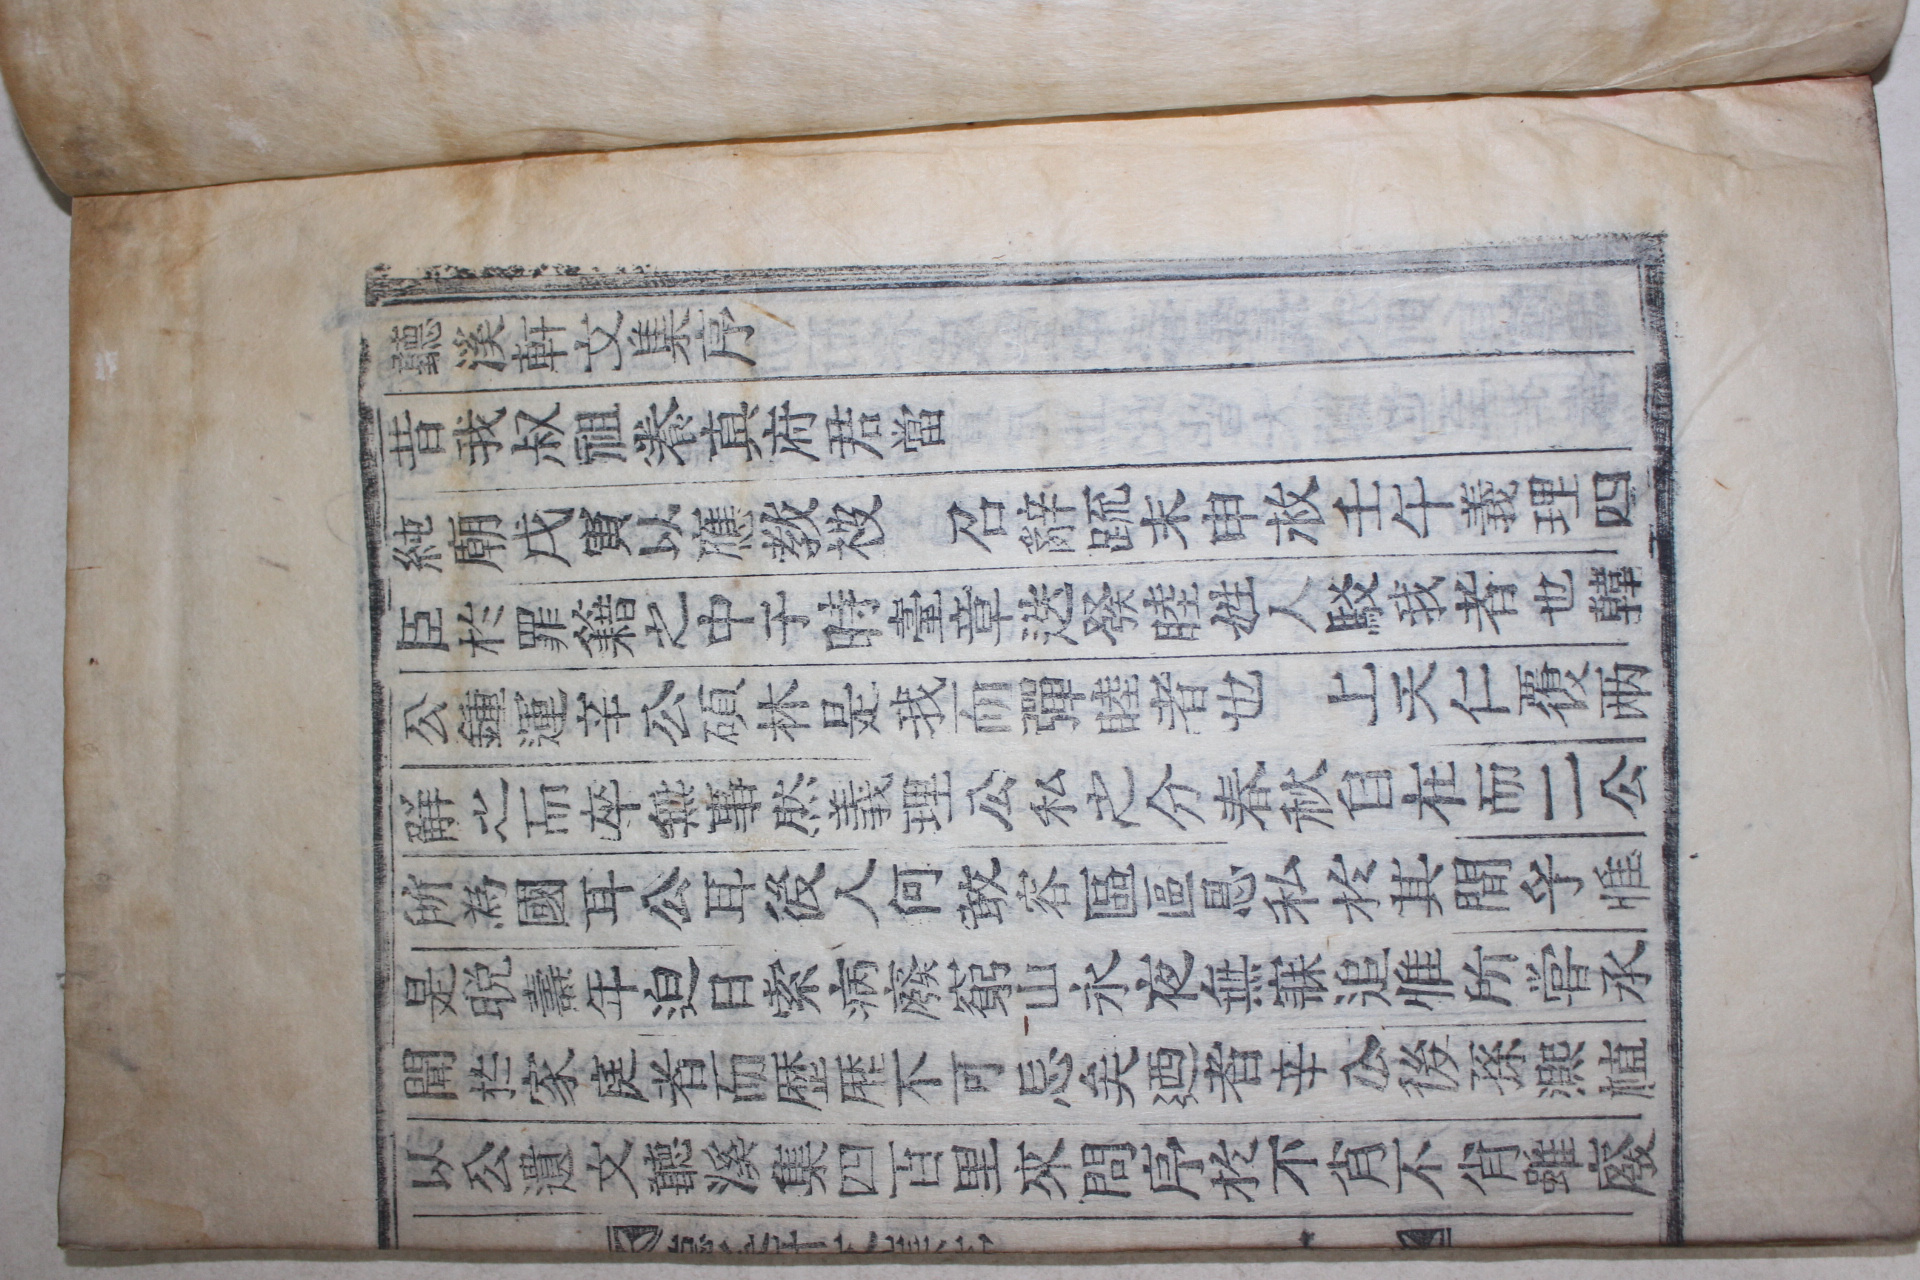 聽溪軒文集序
昔我叔祖養真府君當
純廟戊寅以應教被 召辭疏末申救壬午義理四
臣於罪籍之中于時臺章迭發睦姓人駁我者也韓
公鍾運辛公碩林是我而彈睦者也 上天仁覆兩
解之而卒無事然義理公私之分春秋自在而二公
所為國耳公耳後人何敢容區區恩私於其間乎惟
是晩壽年迫日索病廢窮山永夜無寐追惟所嘗承
聞於家庭者而歷歷不可忘矣迺者辛公後孫濉植
以公遺文聽溪集四百里來問序於不肖不肖雖廢